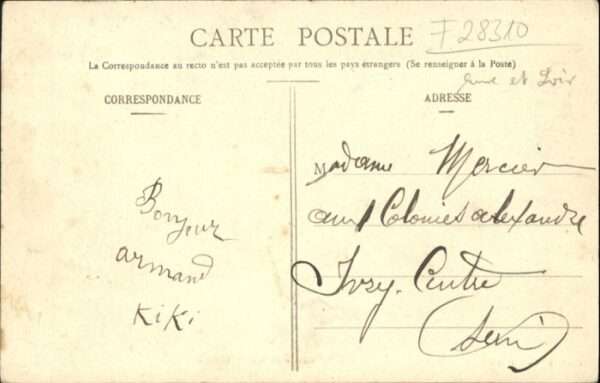 CARTE POSTALE
F28310
La Correspondance au recto n'est pas acceptée par tous les pays étrangers (Se renseigner à la Poste)
Eure et Loir
CORRESPONDANCE
ADRESSE
Bonjour
armand
KiKi
Madame Mercier
aux Colonies alexandre
Ivry-Centre
(Seine)